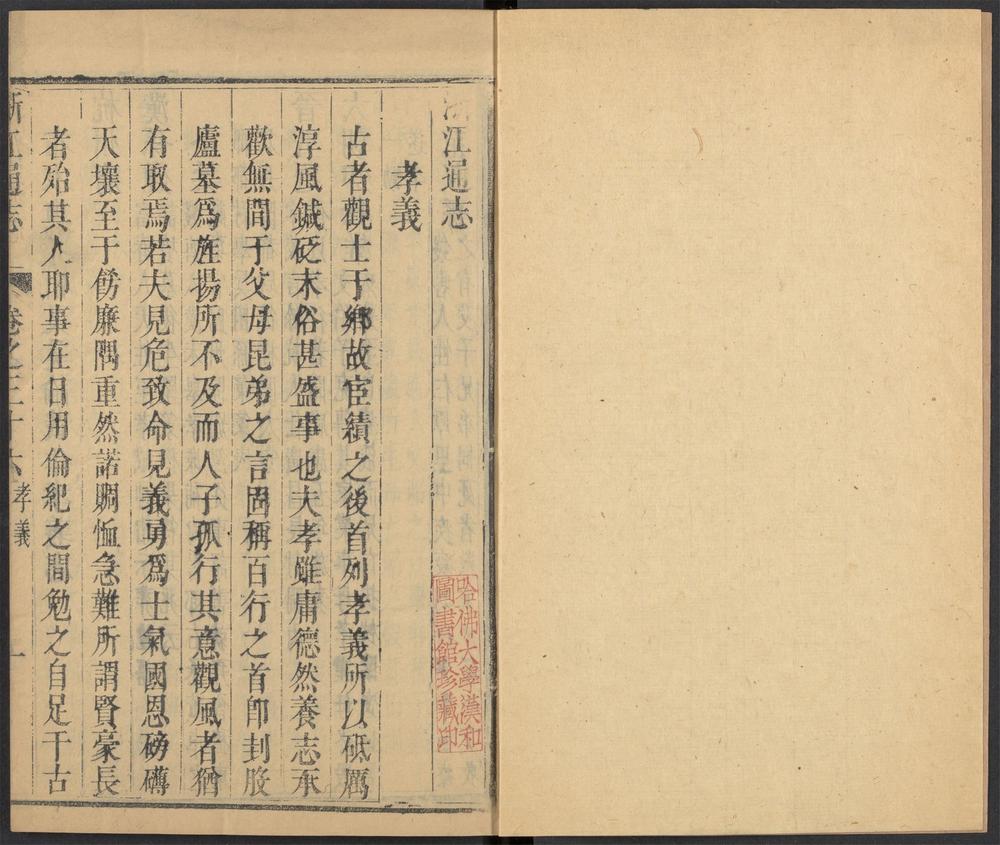 浙江通志
孝義
古者觀士于鄉故宦績之後首列孝義所以砥厲
淳風鍼砭末俗甚盛事也夫孝雖庸德然養志承
歡無間于父母昆弟之言固稱百行之首卽刲股
廬墓爲旌揚所不及而人子孤行其意觀風者猶
有取焉若夫見危致命見義勇爲士氣國恩磅礡
天壤至于飭廉隅重然諾賙恤急難所謂賢豪長
者殆其人耶事在日用倫紀之間勉之自足千古
浙江通志 卷之三十六 孝義 一
哈佛大學漢和
圖書館珍藏印